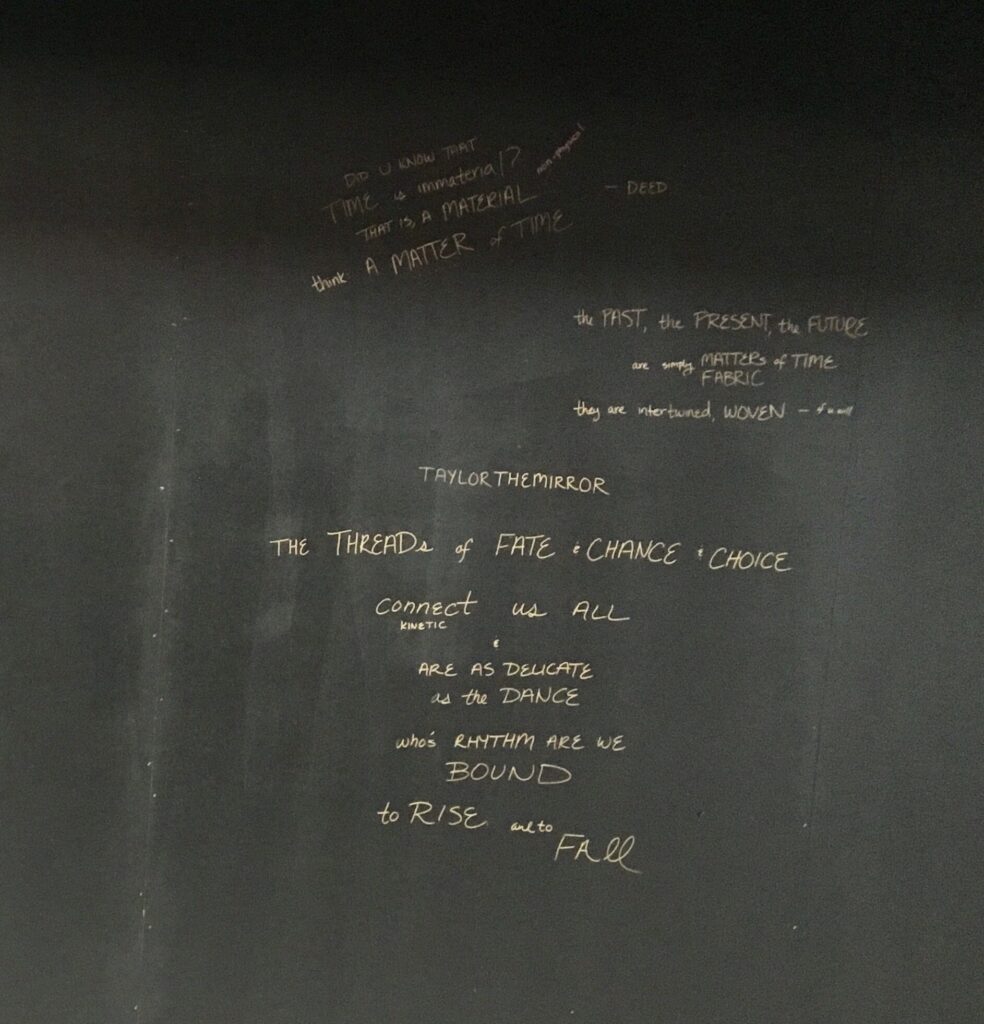 DID U KNOW THAT
TIME is immaterial? non-physical
THAT IS, A MATERIAL
think A MATTER of TIME
- DEED
the PAST, the PRESENT, the FUTURE
are simply MATTERs of TIME
FABRIC
they are intertwined, WOVEN -
TAYLORTHEMIRROR
THE THREADs of FATE & CHANCE & CHOICE
connect us ALL
KINETIC
&
ARE AS DELICATE
as the DANCE
who's RHYTHM ARE WE
BOUND
to RISE and to
FAll